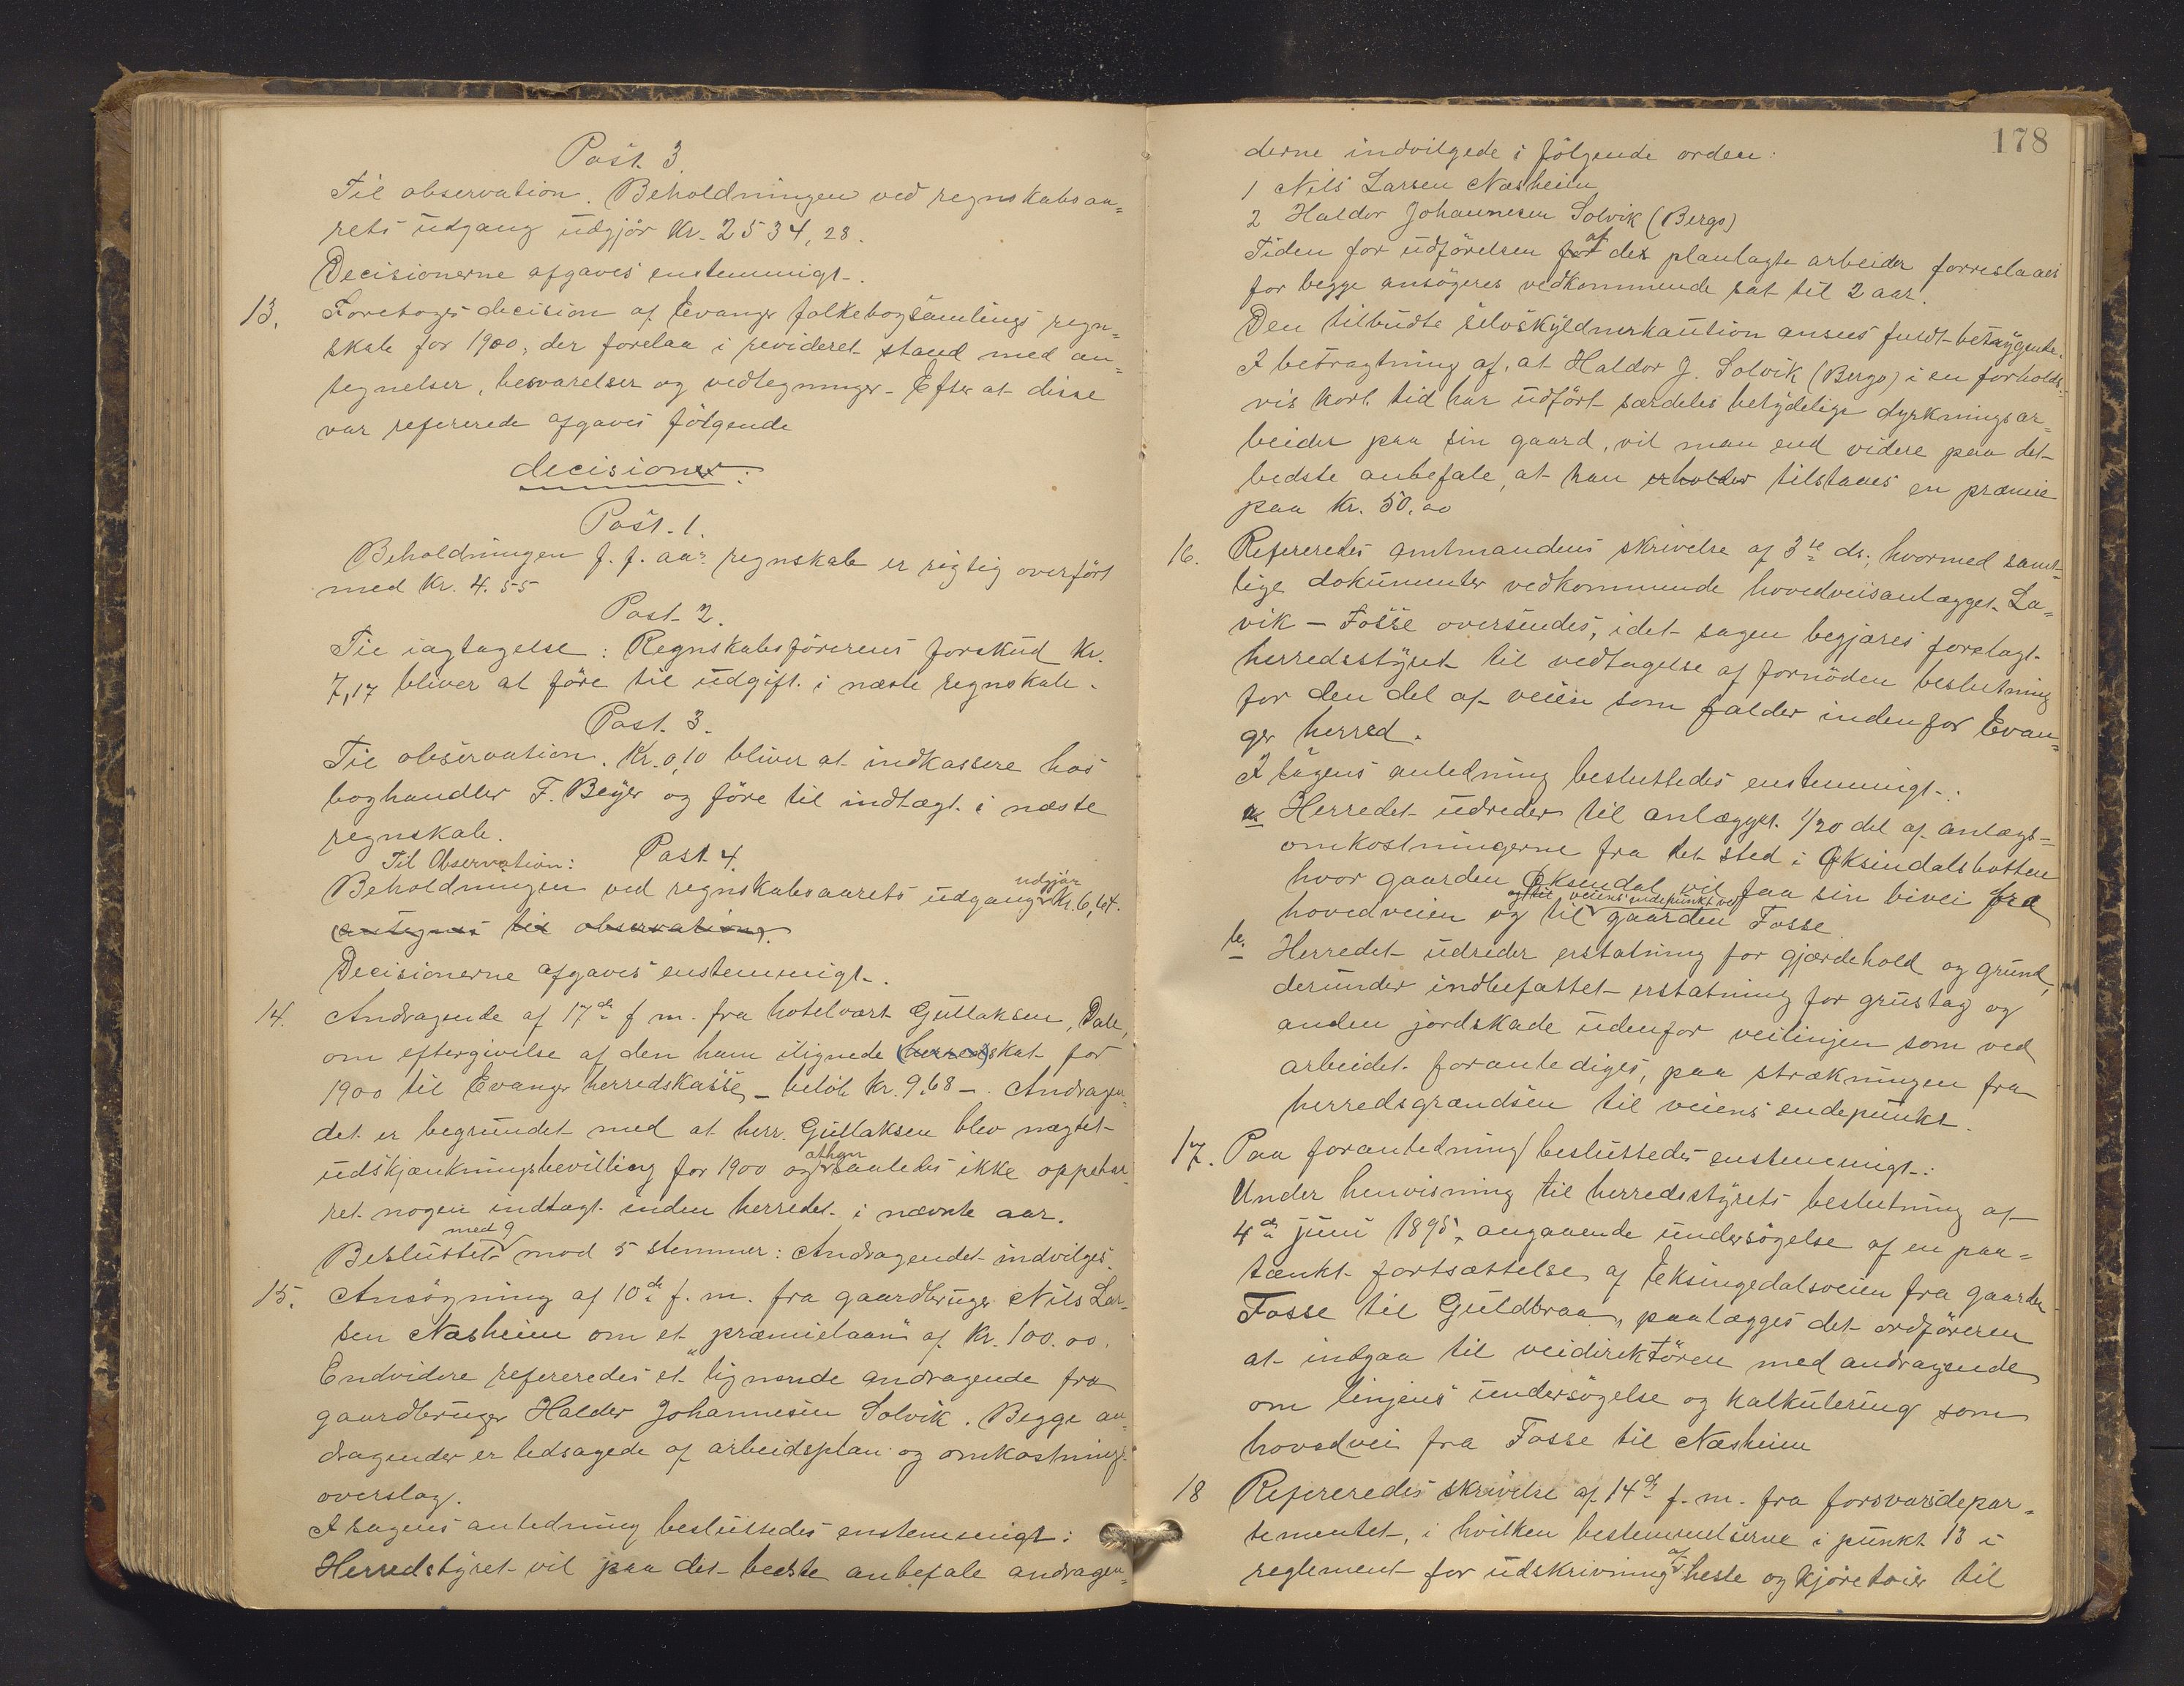 Post. 3
Til observation. Beholdningen ved regnskabsaa=
rets udgang udgjör Kr. 2534,28.
Decisionerne afgaves enstemmigt.
13. Foretoges decision af Evanger folkebogsamlings regn=
skab for 1900, der forelaa i revideret stand med an=
tegnelser, besvarelser og vedtegninger. Efter at disse
var refererede afgaves fölgende
decisioner:
Post. 1.
Beholdningen f. f. aars regnskab er rigtig overfört
med Kr. 4.55
Post 2.
Til iagtagelse: Regnskabsförerens forskud Kr.
7,17 bliver at före til udgift i næste regnskab.
Post. 3.
Til observation. Kr. 0,10 bliver at indkassere hos
boghandler F. Beyer og före til indtægt i næste
regnskab.
Til Observation: Post 4.
Beholdningen ved regnskabsaarets udgang udgjör Kr. 6,64.
antegnes til observation.
Decisionerne afgaves enstemmigt.
14. Andragende af 17de f. m. fra hotelvært Gullaksen, Dale,
om eftergivelse af den ham ilignede (herred)skat for
1900 til Evanger herredskasse, – beløb Kr. 9.68 –. Andragen=
det er begrundet med at herr. Gullaksen blev nægtet
udskjænkningsbevilling for 1900 og at han saaledes ikke oppebar=
ret nogen indtægt inden herredet i nævnte aar.
Besluttet med 9 mod 5 stemmer: Andragendet indvilges.
15. Ansögning af 10de f. m. fra gaardbruger Nils Lar=
sen Næsheim om et "præmielaan" af Kr. 100.00.
Endvidere refereredes et lignende andragende fra
gaardbruger Haldor Johannesen Solvik. Begge an=
dragender er ledsagede af arbeidsplan og omkostnings=
overslag.
I sagens anledning besluttedes enstemmigt:
Herredstyret vil paa det bedste anbefale andragen=
178
derne indvilgede i fölgende orden:
1 Nils Larsen Næsheim
2 Haldor Johannesen Solvik (Bergo)
Tiden for udförelsen for af det planlagte arbeider forreslaaes
for begge ansögeres vedkommende sat til 2 aar.
Den tilbudte selvskyldnerkaution ansees fuldt betryggende.
I betragtning af, at Haldor J. Solvik (Bergo) i en forholds=
vis kort tid har udfört særdeles betydelige dyrkningsar=
beider paa sin gaard, vil man end videre paa det
bedste anbefale, at han erholder tilstaaes en præmie
paa Kr. 50.00
16. Refereredes amtmandens skrivelse af 3die ds., hvormed samt=
lige dokumenter vedkommende hovedveisanlægget La=
vik – Fosse oversendes, idet sagen begjæres forelagt
herredsstyret til vedtagelse af fornöden beslutning
for den del af veien som falder indenfor Evan=
ger herred.
I sagens anledning besluttedes enstemmigt:
a. Herredet udreder til anlægget 1/20 del af anlægs=
omkostningerne fra det sted i Eksindalsbotten
hvor gaarden Eksendal vil faa sin bivei fra
hovedveien og til og til veiens endepunkt ved gaarden Fosse.
b. Herredet udreder erstatning for gjærdehold og grund,
derunder indbefattet erstatning for grustag og
anden jordskade udenfor veilinjen som ved
arbeidet foranlediges, paa strækningen fra
herredsgrændsen til veiens endepunkt.
17. Paa foranledning besluttedes enstemmigt:
Under henvisning til herredsstyrets beslutning af
4de juni 1895, angaaende undersögelse af en paa=
tænkt fortsættelse af Eksingedalsveien fra gaarden
Fosse til Guldbraa, paalægges det ordföreren
at indgaa til veidirektören med andragende
om linjens undersögelse og kalkulering som
hovedvei fra Fosse til Næsheim
18 Refereredes skrivelse af 14de f. m. fra forsvarsdepar=
tementet, i hvilken bestemmelserne i punkt 13 i
reglement for udskrivning af heste og kjöretöier til